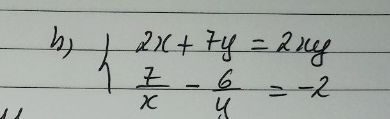 b) { 2x + 7y = 2xy
7/x - 6/y = -2